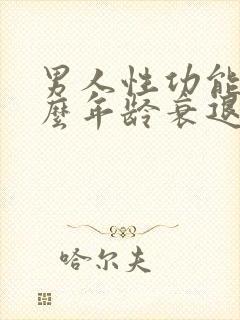 男人性功能
麽年龄衰退
哈尔夫